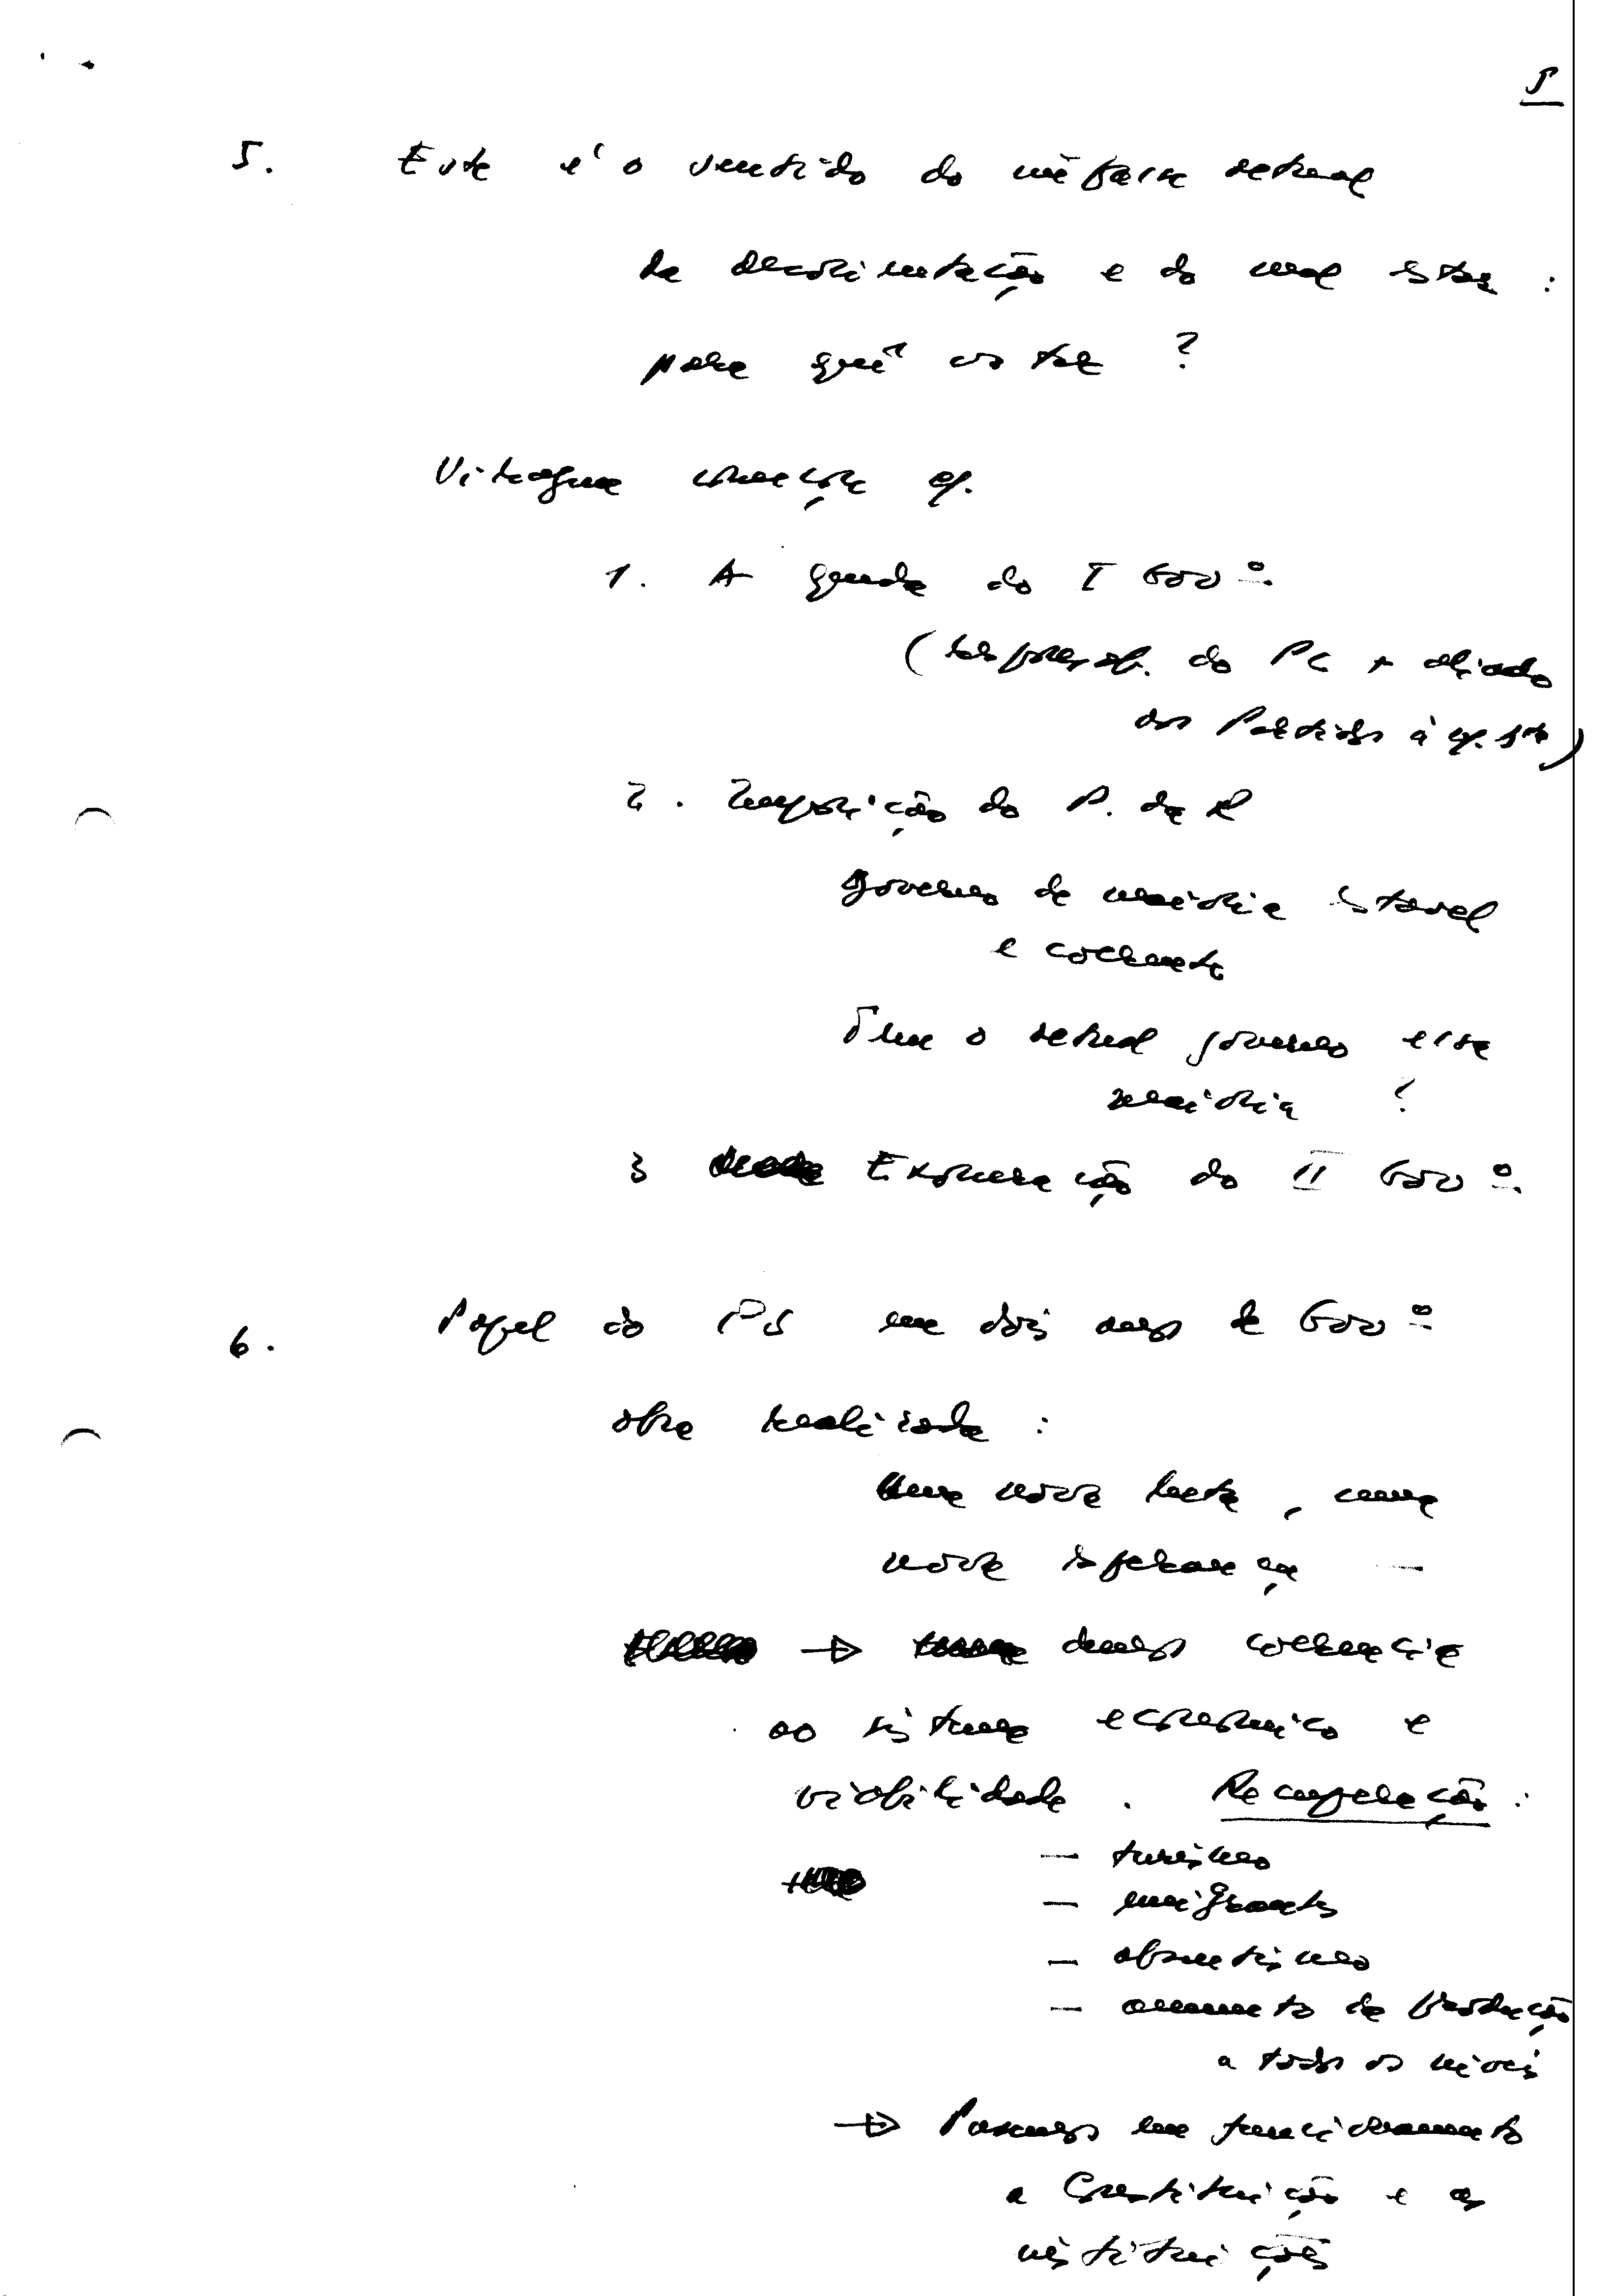 5
5. Este é o sentido do impasse actual
da desorientação e do mal estar :
para quê votar ?
Vitagua começou c/.
1. A queda do I Govº.
(responsab. do PC + aliado
aos Partidos à esq. )
2. Imposição do P. da R
governo de maioria estavel
e coerente
Tem o actual governo essa
maioria ?
3 Exoneração do II Govº.
6. Papel do PS em dois anos de Govº
obra realizada :
Uma nova meta, uma
nova esperança —
→ demos coerencia
ao sistema economico e
viabilidade . Recuperação :
— turismo
— emigrantes
— absentismo
— aumento da produção
a todos os niveis
→ Pusemos em funcionamento
a Constituição e as
instituições